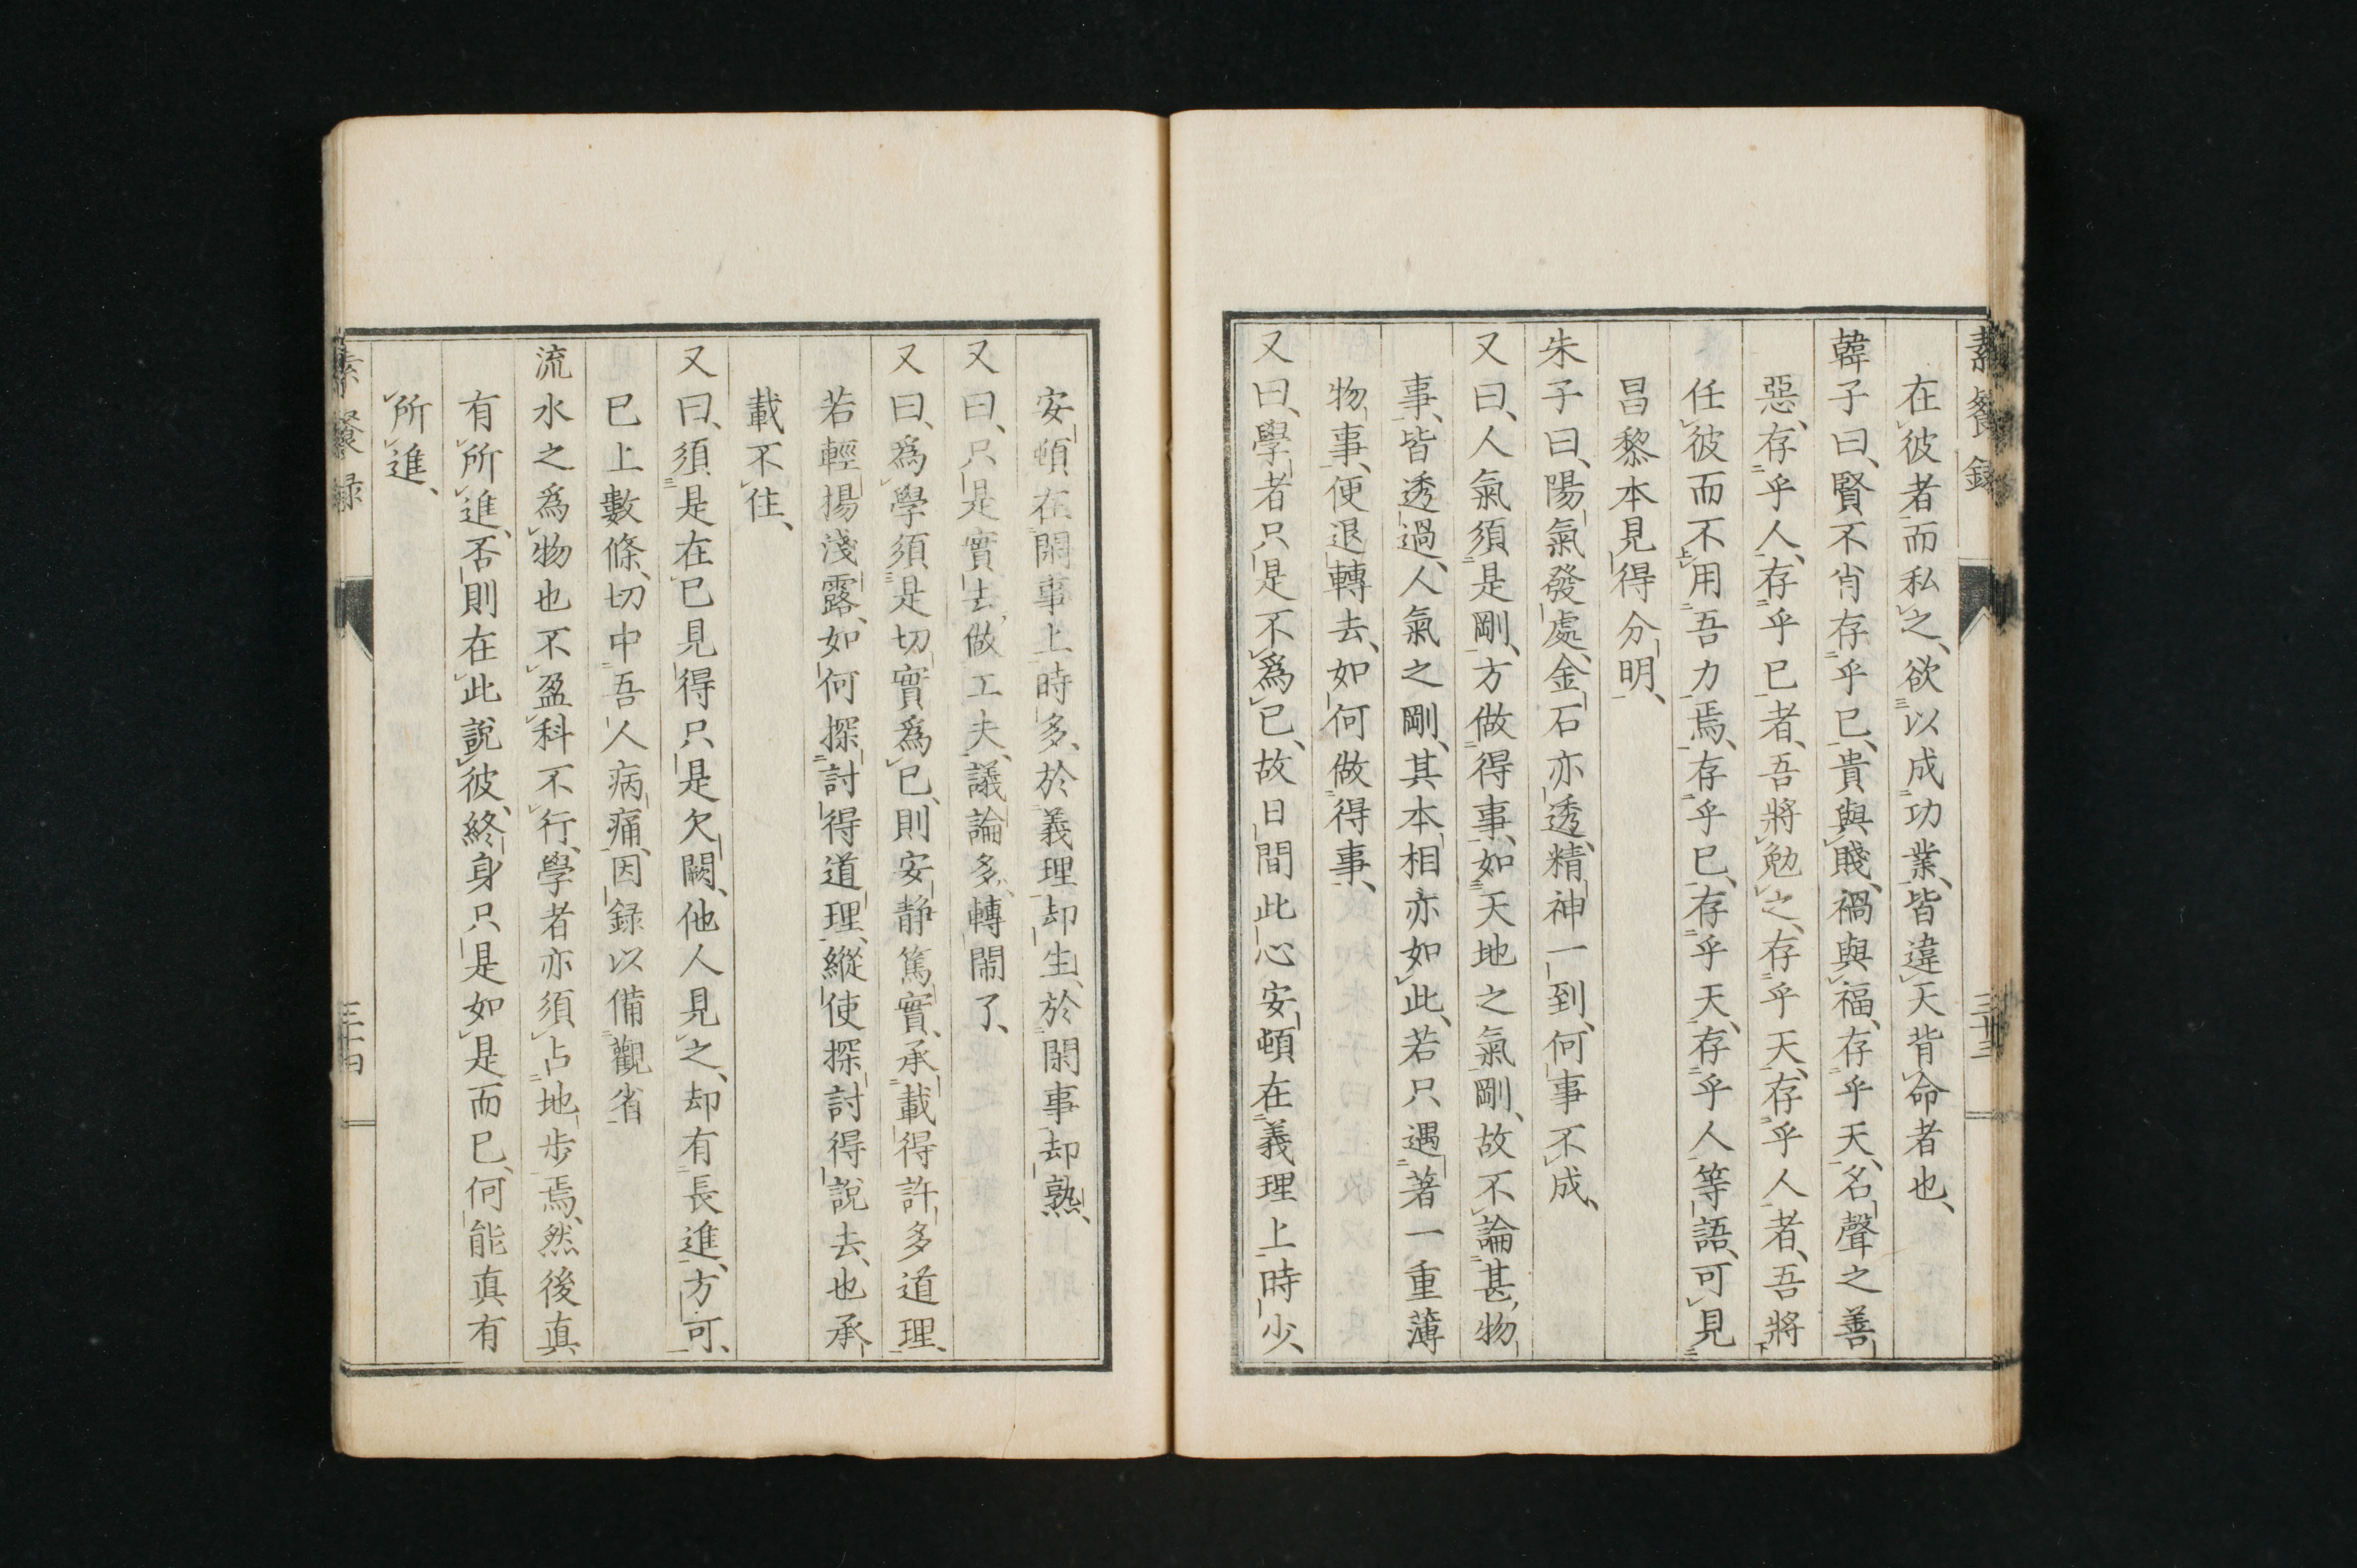 素餐録
三十三
在彼者而私之、欲以成功業、皆違天背命者也、
韓子曰、賢不肖存乎已、貴與賤、禍與福、存乎天、名聲之善
惡、存乎人、存乎已者、吾將勉之、存乎天、存乎人者、吾將
任彼而不用吾力焉、存乎已、存乎天、存乎人等語、可見
昌黎本見得分明、
朱子曰、陽氣發處、金石亦透、精神一到、何事不成、
又曰、人氣須是剛、方做得事、如天地之氣剛、故不論甚物
事、皆透過、人氣之剛、其本相亦如此、若只遇著一重薄
物事、便退轉去、如何做得事、
又曰、學者只是不爲已、故日間此心安頓在義理上時少、
安頓在閑事上時多、於義理却生、於閑事却熟、
又曰、只是實去做工夫、議論多、轉鬧了、
又曰、爲學須是切實爲已、則安靜篤實、承載得許多道理、
若輕揚淺露、如何探討得道理、縱使探討得說去、也承
載不住、
又曰、須是在已見得只是欠闕、他人見之、却有長進、方可、
已上數條、切中吾人病痛、因録以備觀省
流水之爲物也不盈科不行、學者亦須占地歩焉、然後真
有所進、否則在此說彼、終身只是如是而已、何能真有
所進、
素餐録
三十四